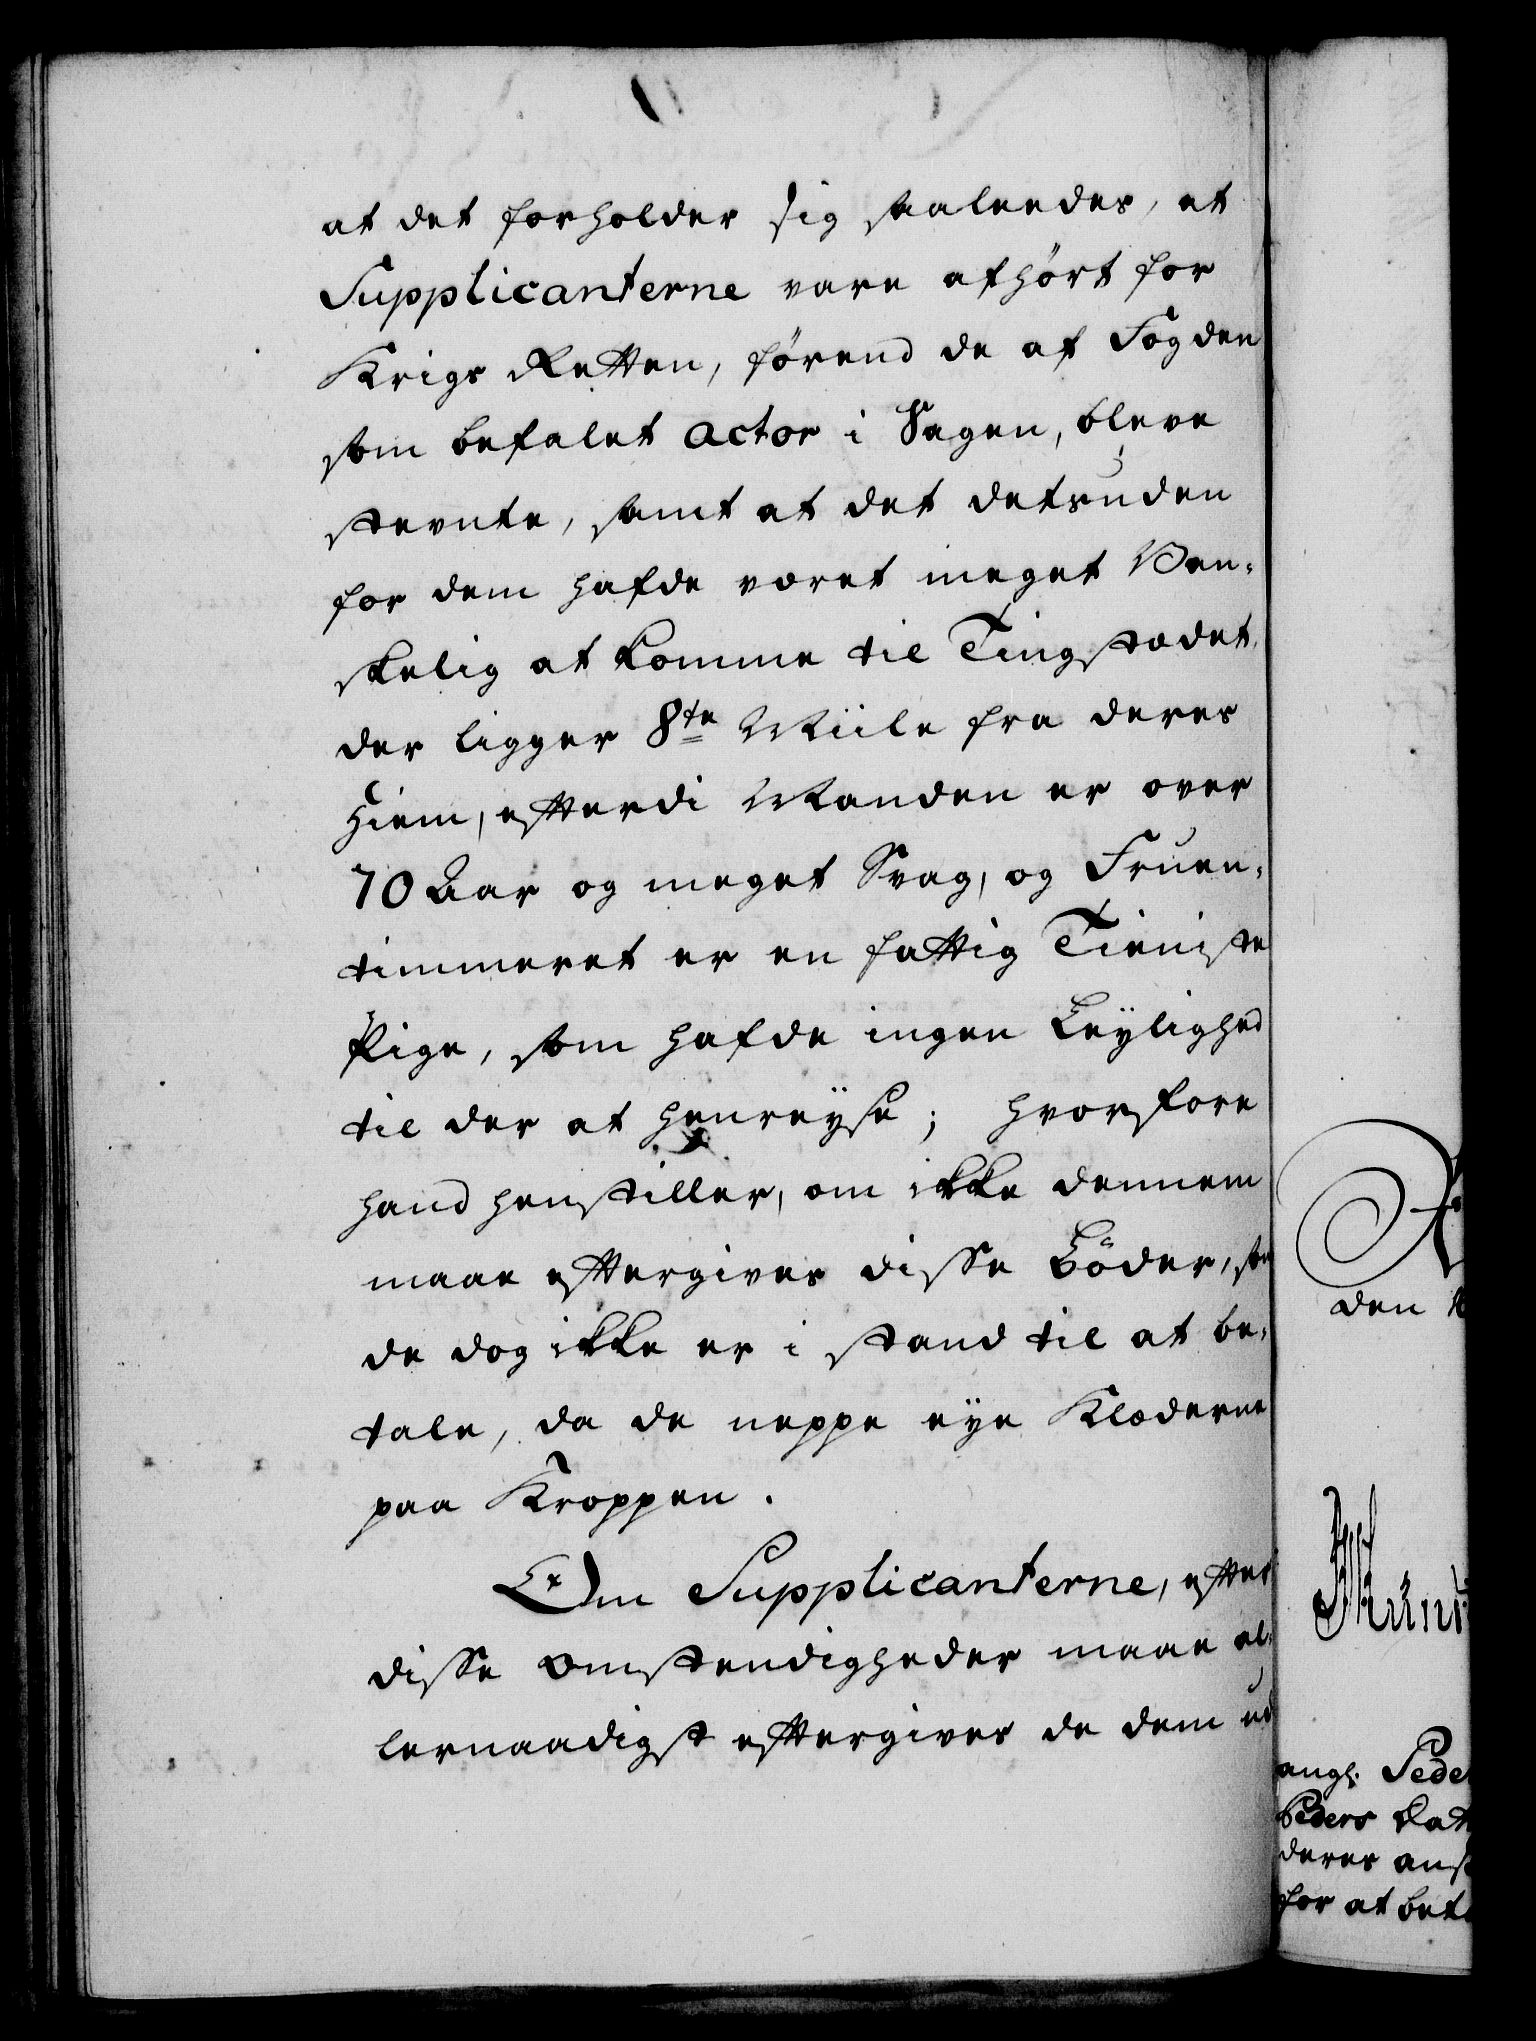 at det forholder sig saaleedes, at
Supplicanterne vare afhørt for
Krigs Retten, førend de af Fogden
som befalet Actor i Sagen, bleve
stevnte, samt at det desuden
for dem hafde været meget Van-
skelig at komme til Tingstædet,
der ligger 8te Miile fra deres
Hiem, efterdi Manden er over
70 Aar og meget Svag, og Fruen-
timmeret er en fattig Tieniste
Pige, som hafde ingen Leylighed
til der at henreyse; hvorfore
hand henstiller, om ikke dennem
maae eftergives disse Bøder, som
de dog ikke er i stand til at be-
tale, da de neppe eye Klæderne
paa Kroppen.
Om Supplicanterne, efter
disse Omstendigheder maae al-
lernaadigst eftergives de dem ud
den
angl. Peder
Peders Dat
deres
for at bet